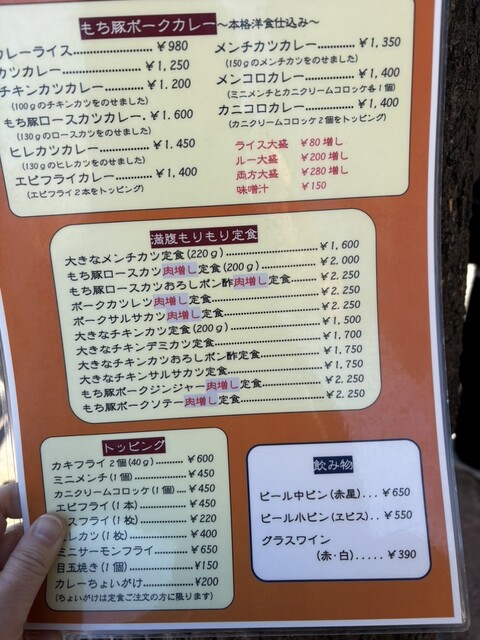 もち豚ポークカレー～本格洋食仕込み～
カレーライス ¥980
カツカレー ¥1,250
チキンカツカレー ¥1.200
(100gのチキンカツをのせました)
もち豚ロースカツカレー. ¥1.600
(130gのロースカツをのせました)
ヒレカツカレー ¥1.450
(130gのヒレカツをのせました)
エビフライカレー ¥1,400
(エビフライ2本をトッピング)
メンチカツカレー ¥1,350
(150gのメンチカツをのせました)
メンコロカレー ¥1,400
(ミニメンチとカニクリームコロッケ各1個)
カニコロカレー ¥1,400
(カニクリームコロッケ2個をトッピング)
ライス大盛 ¥80増し
ルー大盛 ¥200増し
両方大盛 ¥280増し
味噌汁 ¥150
満腹もりもり定食
大きなメンチカツ定食(220g) ¥1,600
もち豚ロースカツ肉増し定食(200g) ¥2.000
もち豚ロースカツおろしポン酢肉増し定食 ¥2.250
ポークカツレツ肉増し定食 ¥2.250
ポークサルサカツ肉増し定食 ¥2.250
大きなチキンカツ定食(200g) ¥1,500
大きなチキンデミカツ定食 ¥1,700
大きなチキンカツおろしポン酢定食 ¥1,750
大きなチキンサルサカツ定食 ¥1,750
もち豚ポークジンジャー肉増し定食 ¥2.250
もち豚ポークソテー肉増し定食 ¥2.250
トッピング
カキフライ 2個(40g) ¥600
ミニメンチ(1個) ¥450
カニクリームコロッケ(1個) ¥450
エビフライ(1本) ¥450
スフライ(1枚) ¥220
レカツ(1枚) ¥400
ミニサーモンフライ ¥650
目玉焼き(1個) ¥150
カレーちょいがけ ¥200
(ちょいがけは定食ご注文の方に限ります)
飲み物
ビール中ビン(赤星)... ¥650
ビール小ビン(エビス).. ¥550
グラスワイン
(赤・白)..... ¥390